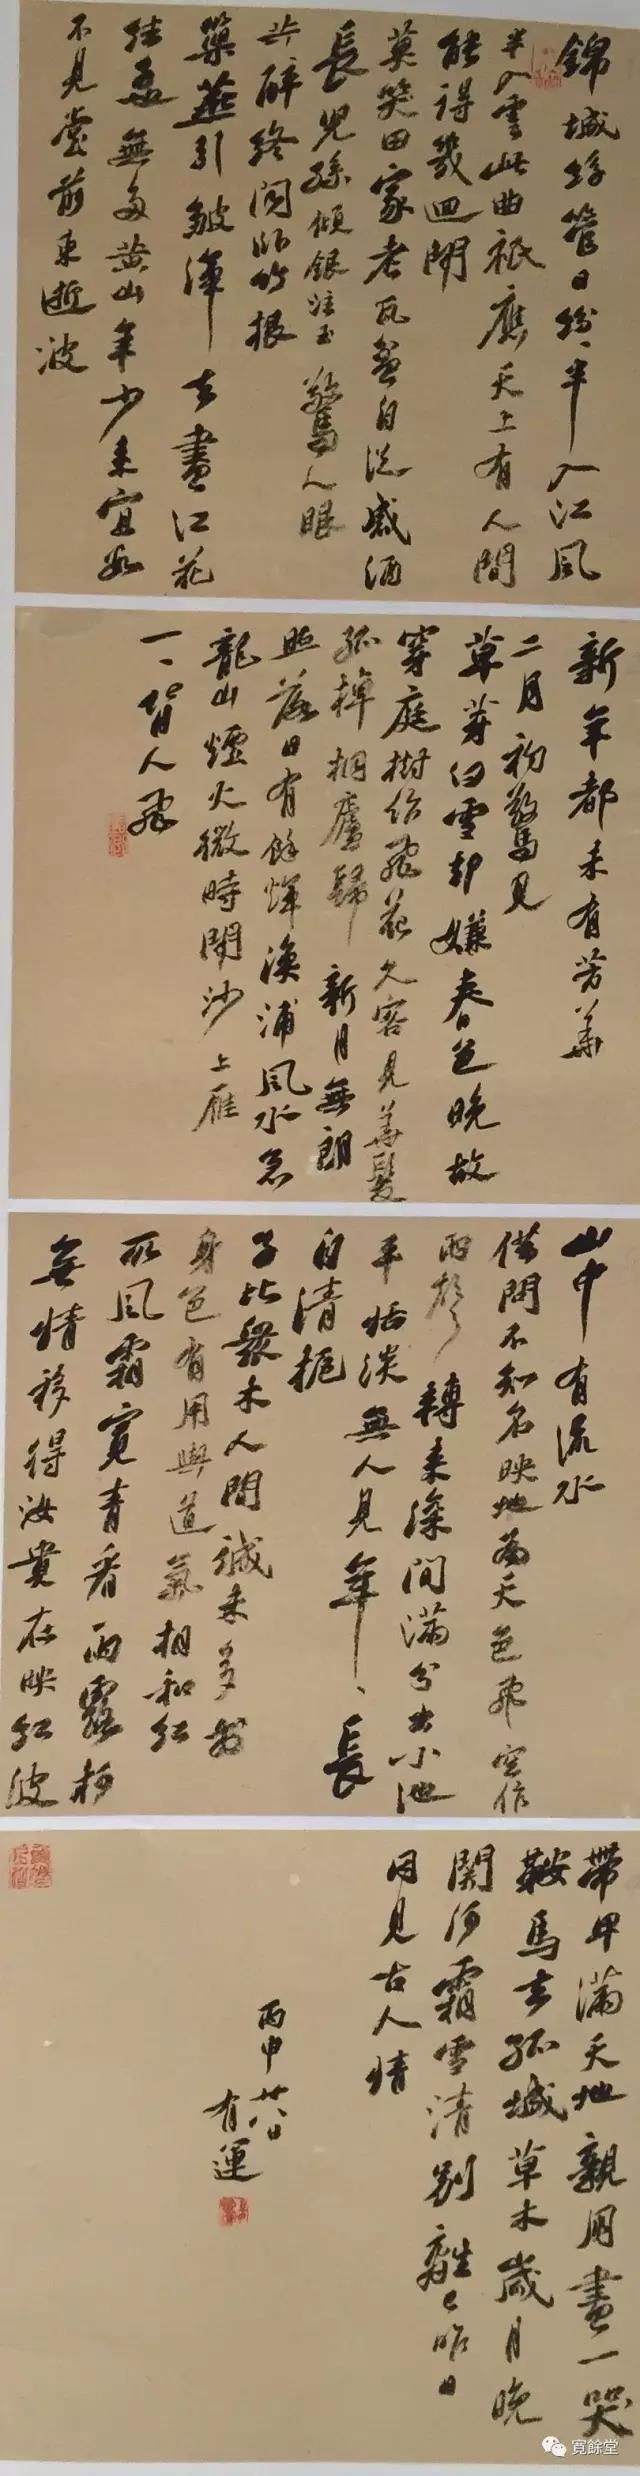 錦城絲管日紛、半入江風
半入雲此曲祇應天上有人間
能得幾回聞
莫笑田家老瓦盆自從盛酒
長兒孫傾銀注玉驚人眼
共醉終同臥竹根
巢燕引雛渾去盡江花
結無多黃山年少來宜數
不見堂前東逝波
新年都未有芳華
二月初驚見
草芽白雪却嫌春色晚故
穿庭樹作飛花久客見華髮
孤棹桐廬歸新月無朗
照落日有餘輝漁浦風水急
龍山煙火微時聞沙上雁
一、背人飛
山中有流水
借問不知名映地為天色飛空作
雨聲轉來深澗滿分出小池
平恬淡無人見年、長
自清梔
子比衆木人間誠未多於
身色有用與道氣相和紅
取風霜實青看雨露柯
無情移得汝貴在映江波
帶甲滿天地親朋盡一哭
鞍馬去孤城草木歲月晚
關河霜雪清別離已昨日
因見古人情
丙申廿八日
有運
寬餘堂